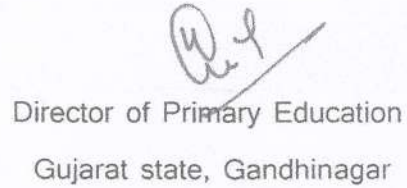 Director of Primary Education
Gujarat state, Gandhinagar